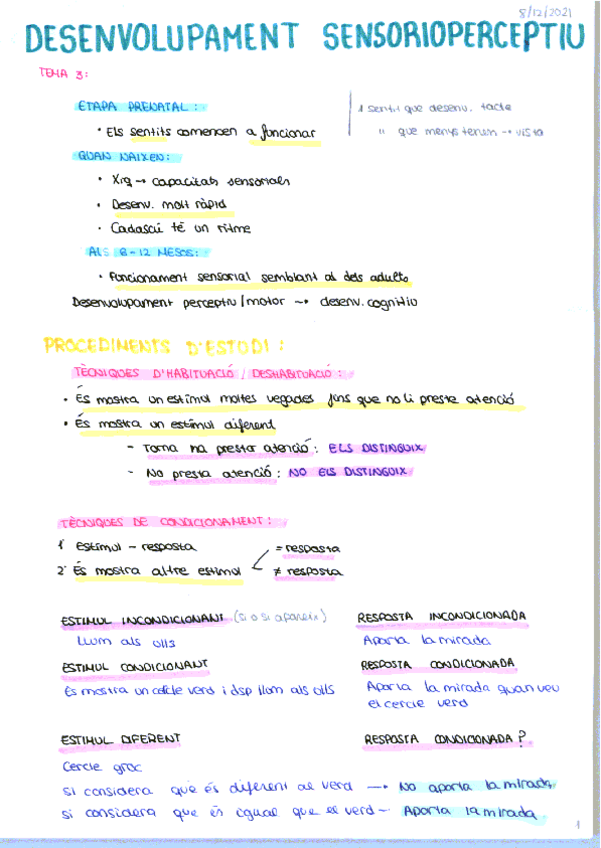 8/12/2021
DESENVOLUPAMENT SENSORIOPERCEPTIU
TEMA 3:
ETAPA PRENATAL:
· Els sentits comencen a funcionar
1 sentit que desenv. tacte
" que menys tenim → vista
QUAN NAIXEN:
· Xiq → capacitats sensorials
· Desenv. molt ràpid
· Cadascú té un ritme
ALS 6-12 MESOS:
· Funcionament sensorial semblant al dels adults
Desenvolupament perceptiu/motor → desenv. cognitiu
PROCEDIMENTS D'ESTUDI:
TÈCNIQUES D'HABITUACIÓ / DESHABITUACIÓ:
· És mostra un estímul moltes vegades fins que no li preste atenció
· És mostra un estímul diferent
- Torna a prestar atenció: ELS DISTINGUIX
- No presta atenció: NO ELS DISTINGUIX
TÈCNIQUES DE CONDICIONAMENT:
1' Estímul - resposta
2' És mostra altre estímul
= resposta
≠ resposta
ESTÍMUL INCONDICIONANT (si o si apareix)
RESPOSTA INCONDICIONADA
Llum als ulls
Aparta la mirada
ESTÍMUL CONDICIONANT
RESPOSTA CONDICIONADA
És mostra un cercle verd i dsp llum als ulls
Aparta la mirada quan veu
el cercle verd
ESTÍMUL DIFERENT
RESPOSTA CONDICIONADA?
Cercle groc
Si considera que és diferent al verd → No aparta la mirada
si considera que és igual que el verd - Aparta la mirada
1